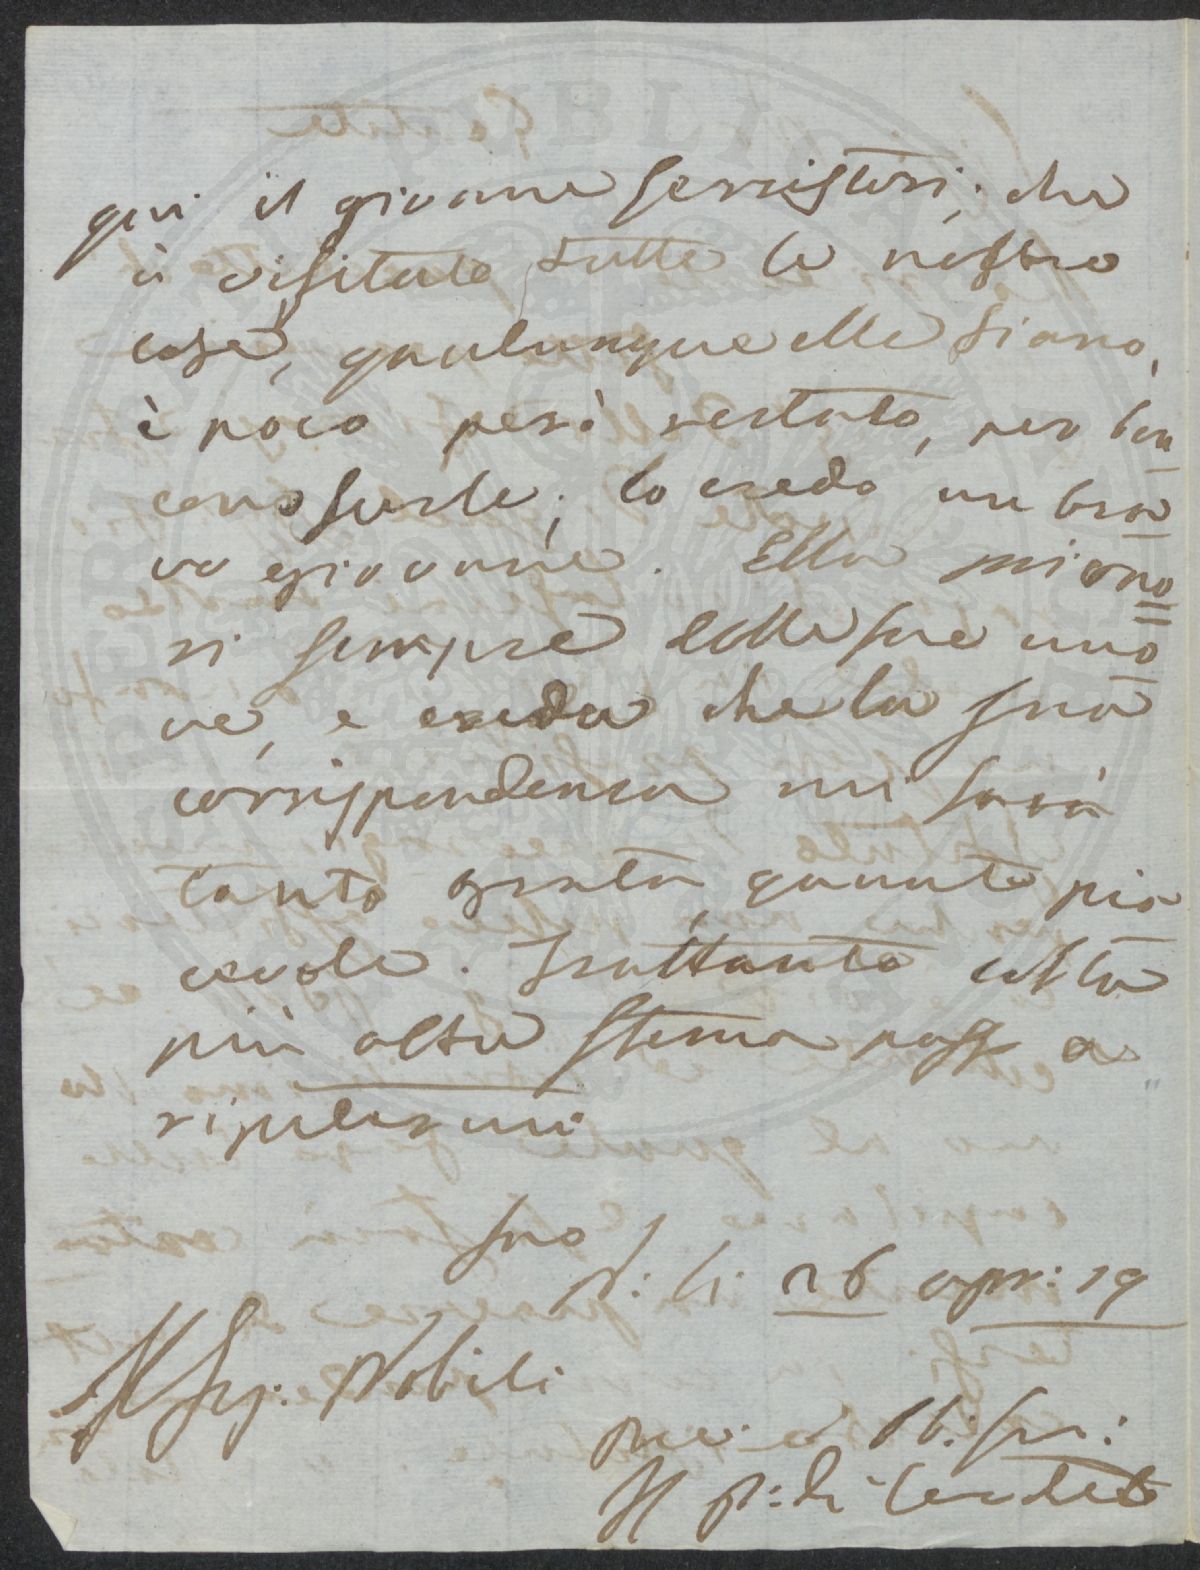 qui il giovane Serristori, che
à visitato tutte le nostre
cose, qualunque elle siano,
è poco però restato, per ben
conoscerle; lo credo un bra
vo giovane. Ella mi ono
ri sempre delle sue nuo
ve, e creda che la sua
corrispondenza mi sarà
tanto grata, quanto pia
cevole. Frattanto colla
più alta stima passo a
ripetermi
Suo
P: li 26 apr: 19
Al Sig: Nobili
Dev: e Ob: Ser:
Il P: di